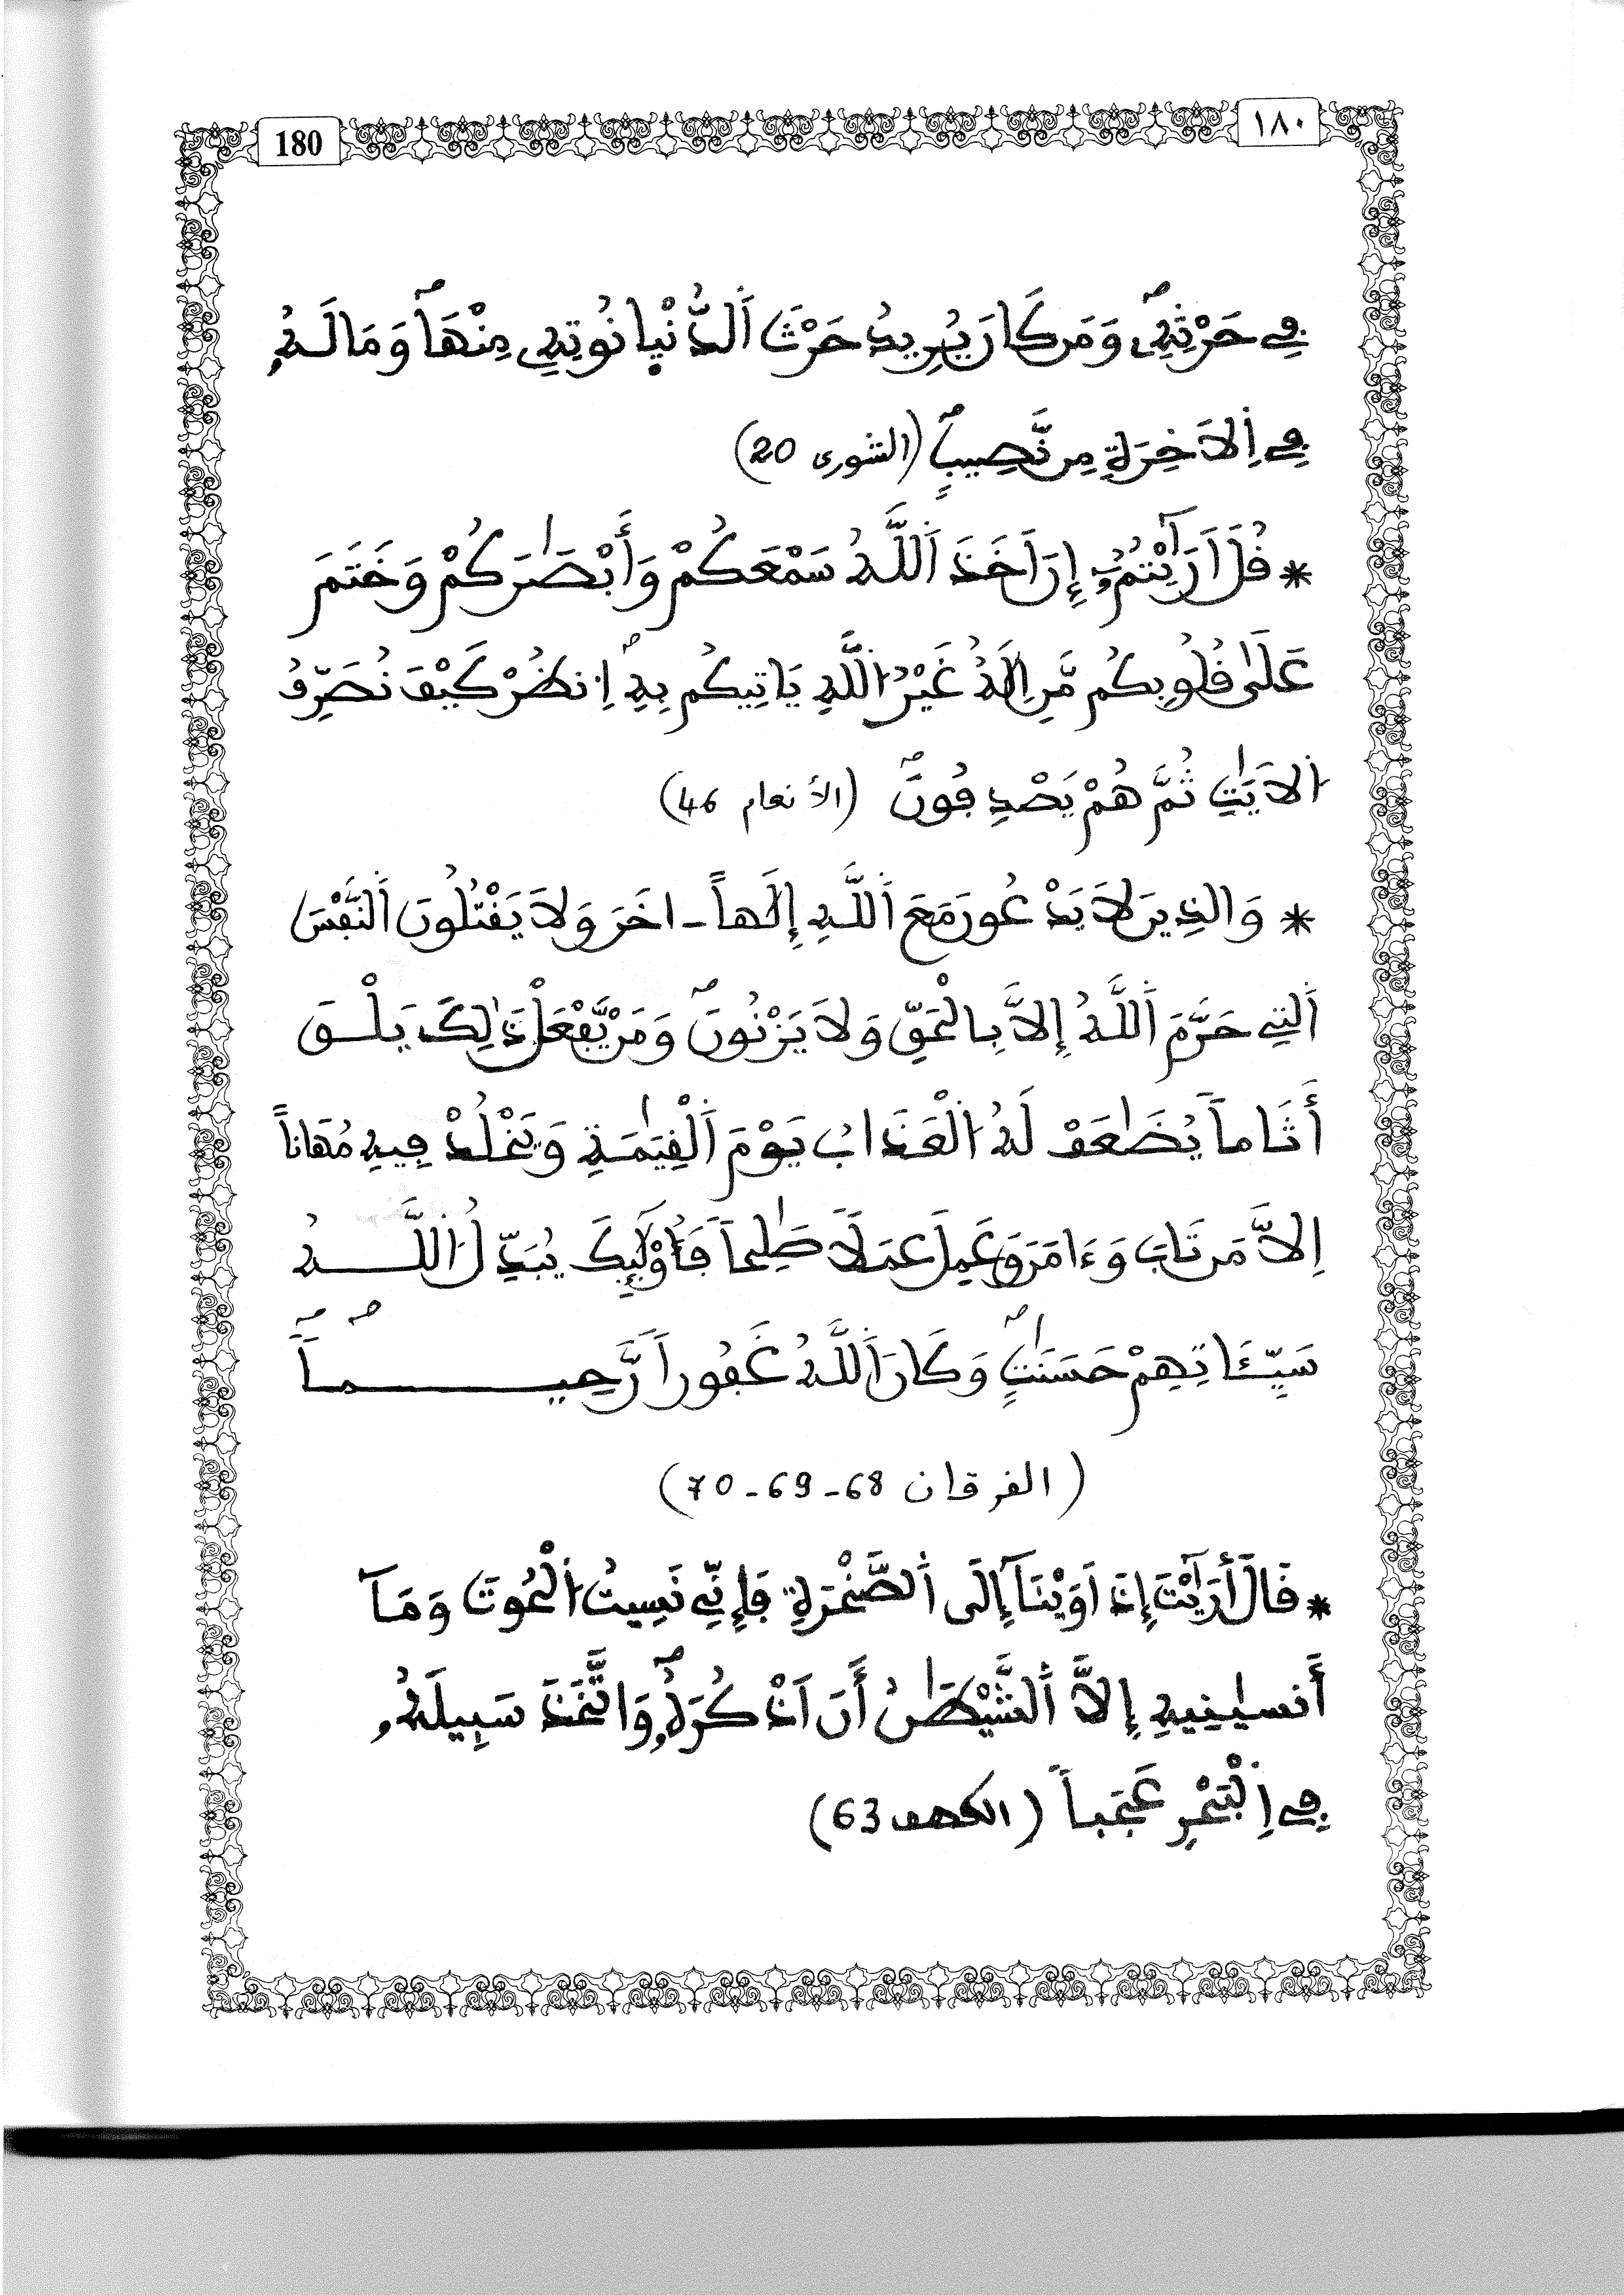 180 ١٨٠
فِے حَرْثِهِۦ وَمَن كَانَ يُرِيدُ حَرْثَ اَ۬لدُّنْيا نُوتِهِۦ مِنْهَا وَمَا لَهُۥ
فِے اِ۬لَاخِرَةِ مِن نَّصِيبٍ (الشورى 20)
* قُلَ اَرَٰيْتُمُۥٓ إِنَ اَخَذَ اَ۬للَّهُ سَمْعَكُمْ وَأَبْصَٰرَكُمْ وَخَتَمَ
عَلَىٰ قُلُوبِكُم مَّنِ اِلَٰهٌ غَيْرُ اُ۬للَّهِ يَاتِيكُم بِهِ اِ۟نظُرْ كَيْفَ نُصَرِّفُ
اُ۬لَايَٰتِ ثُمَّ هُمْ يَصْدِفُونَ (الأنعام 46)
* وَالذِينَ لَا يَدْعُونَ مَعَ اَ۬للَّهِ إِلَٰهاً - اخَرَ وَلَا يَقْتُلُونَ اَ۬لنَّفْسَ
اَ۬لتِے حَرَّمَ اَ۬للَّهُ إِلَّا بِالْحَقِّ وَلَا يَزْنُونَ وَمَنْ يَّفْعَلْ ذَٰلِكَ يَلْقَ
أَثَاماً يُضَٰعَفْ لَهُ اُ۬لْعَذَابُ يَوْمَ اَ۬لْقِيَٰمَةِ وَيَخْلُدْ فِيهِ مُهَاناً
اِلَّا مَن تَابَ وَءَامَنَ وَعَمِلَ عَمَلاً صَٰلِحاً فَأُوْلَٰٓئِكَ يُبَدِّلُ اُ۬للَّهُ
سَيِّـَٔاتِهِمْ حَسَنَٰتٍ وَكَانَ اَ۬للَّهُ غَفُوراً رَّحِيماً
(الفرقان 68-69-70)
* قَالَ أَرَٰيْتَ إِذَ اَوَيْنَآ إِلَى اَ۬لصَّخْرَةِ فَإِنِّے نَسِيتُ اُ۬لْحُوتَ وَمَآ
أَنسَىٰنِيهِ إِلَّا اَ۬لشَّيْطَٰنُ أَنَ اَذْكُرَهُۥ وَاتَّخَذَ سَبِيلَهُۥ
فِے اِ۬لْبَحْرِ عَجَباً (الكهف 63)